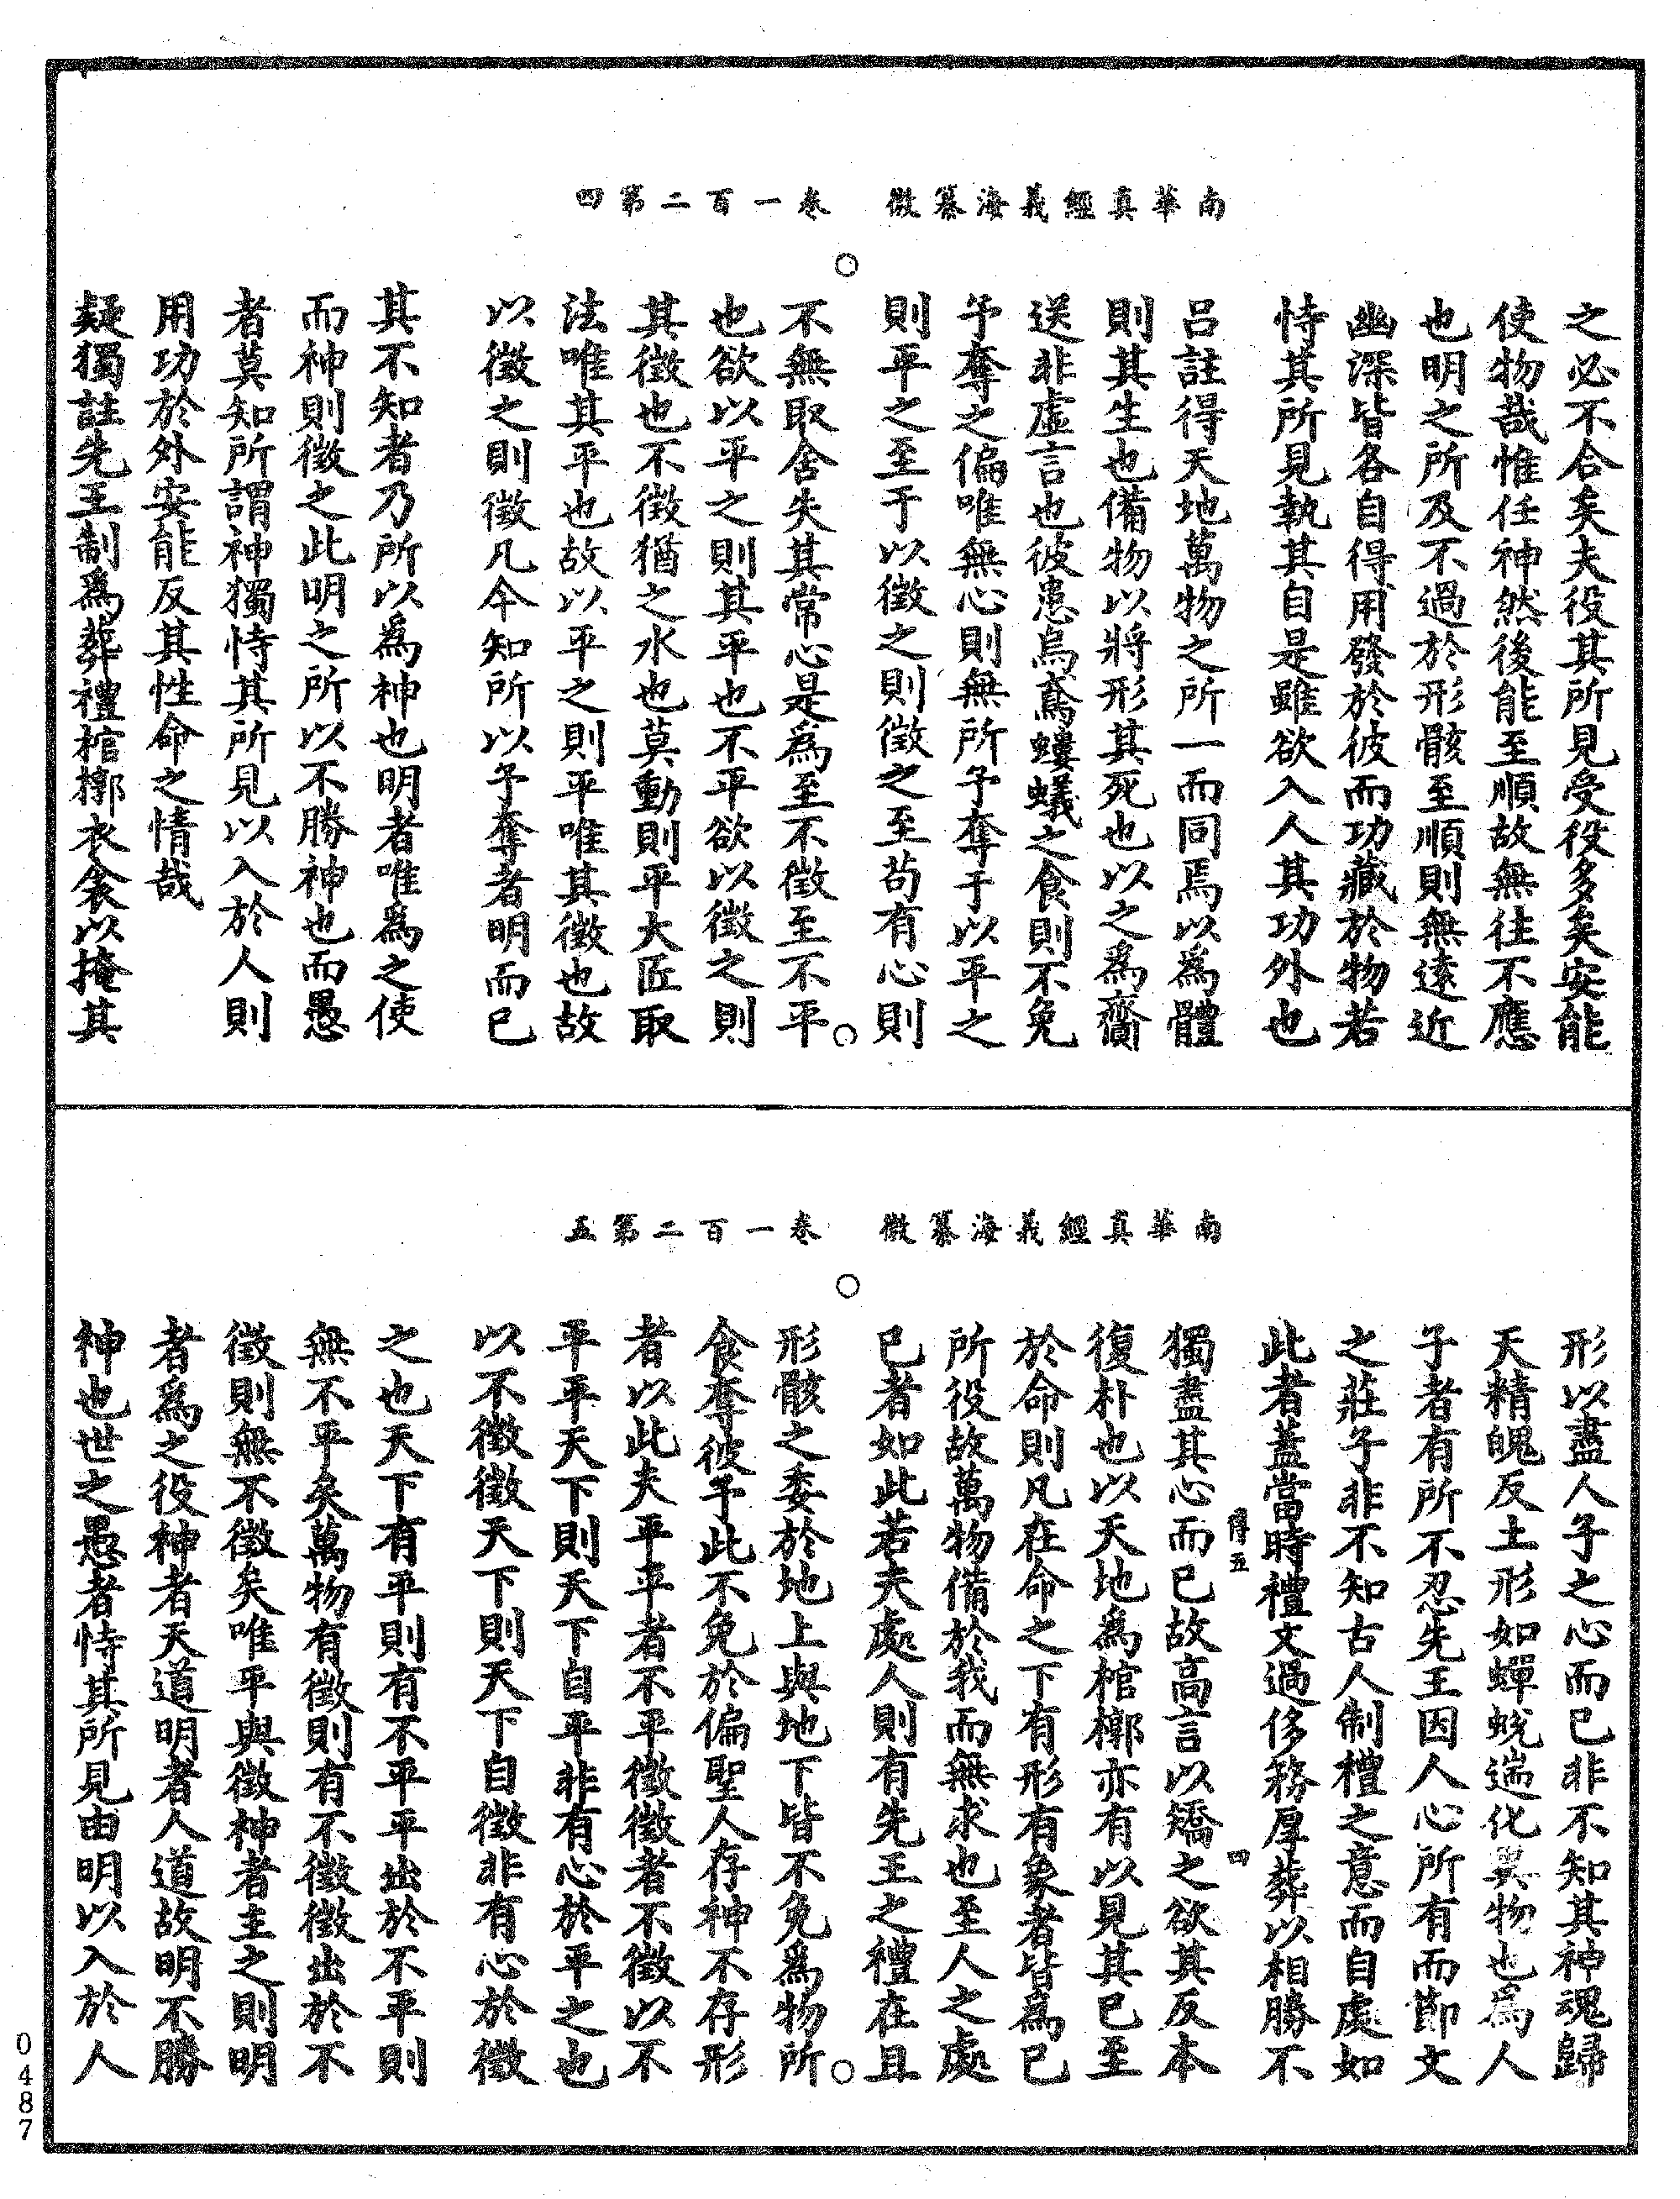 南華真經義海纂微　卷一百二第四
之必不合矣夫役其所見受役多矣安能
使物哉惟任神然後能至順故無往不應
也明之所及不過於形骸至順則無遠近
幽深皆各自得用發於彼而功藏於物若
恃其所見執其自是雖欲入人其功外也
呂註得天地萬物之所一而同焉以為體
則其生也備物以將形其死也以之為齎
送非虛言也彼患烏鳶螻蟻之食則不免
予奪之偏唯無心則無所予奪于以平之
則平之至于以徵之則徵之至苟有心則
不無取舍失其常心是為至不徵至不平
也欲以平之則其平也不平欲以徵之則
其徵也不徵猶之水也莫動則平大匠取
法唯其平也故以平之則平唯其徵也故
以徵之則徵凡今知所以予奪者明而已
其不知者乃所以為神也明者唯為之使
而神則徵之此明之所以不勝神也而愚
者莫知所謂神獨恃其所見以入於人則
用功於外安能反其性命之情哉
疑獨註先王制為葬禮棺槨衣衾以掩其
南華真經義海纂微　卷一百二第五
形以盡人子之心而已非不知其神魂歸
天精魄反土形如蟬蛻遄化異物也為人
子者有所不忍先王因人心所有而節文
之莊子非不知古人制禮之意而自處如
此者蓋當時禮文過侈務厚葬以相勝不
獨盡其心而已故高言以矯之欲其反本
復朴也以天地為棺槨亦有以見其已至
於命則凡在命之下有形有象者皆為已
所役故萬物備於我而無求也至人之處
已者如此若夫處人則有先王之禮在且
形骸之委於地上與地下皆不免為物所
食奪彼予此不免於偏聖人存神不存形
者以此夫平平者不平徵徵者不徵以不
平平天下則天下自平非有心於平之也
以不徵徵天下則天下自徵非有心於徵
之也天下有平則有不平平出於不平則
無不平矣萬物有徵則有不徵徵出於不
徵則無不徵矣唯平與徵神者主之則明
者為之役神者天道明者人道故明不勝
神也世之愚者恃其所見由明以入於人
五
四
0487